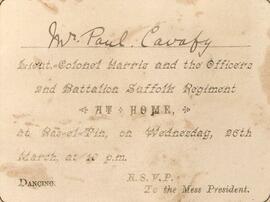 Mr. Paul. Cavafy
Lieut.-Colonel Harris and the Officers
2nd Battalion Suffolk Regiment
AT HOME,
at Ras-el-Tin, on Wednesday, 26th
March, at 10 p.m.
R. S. V. P.
DANCING. To the Mess President.